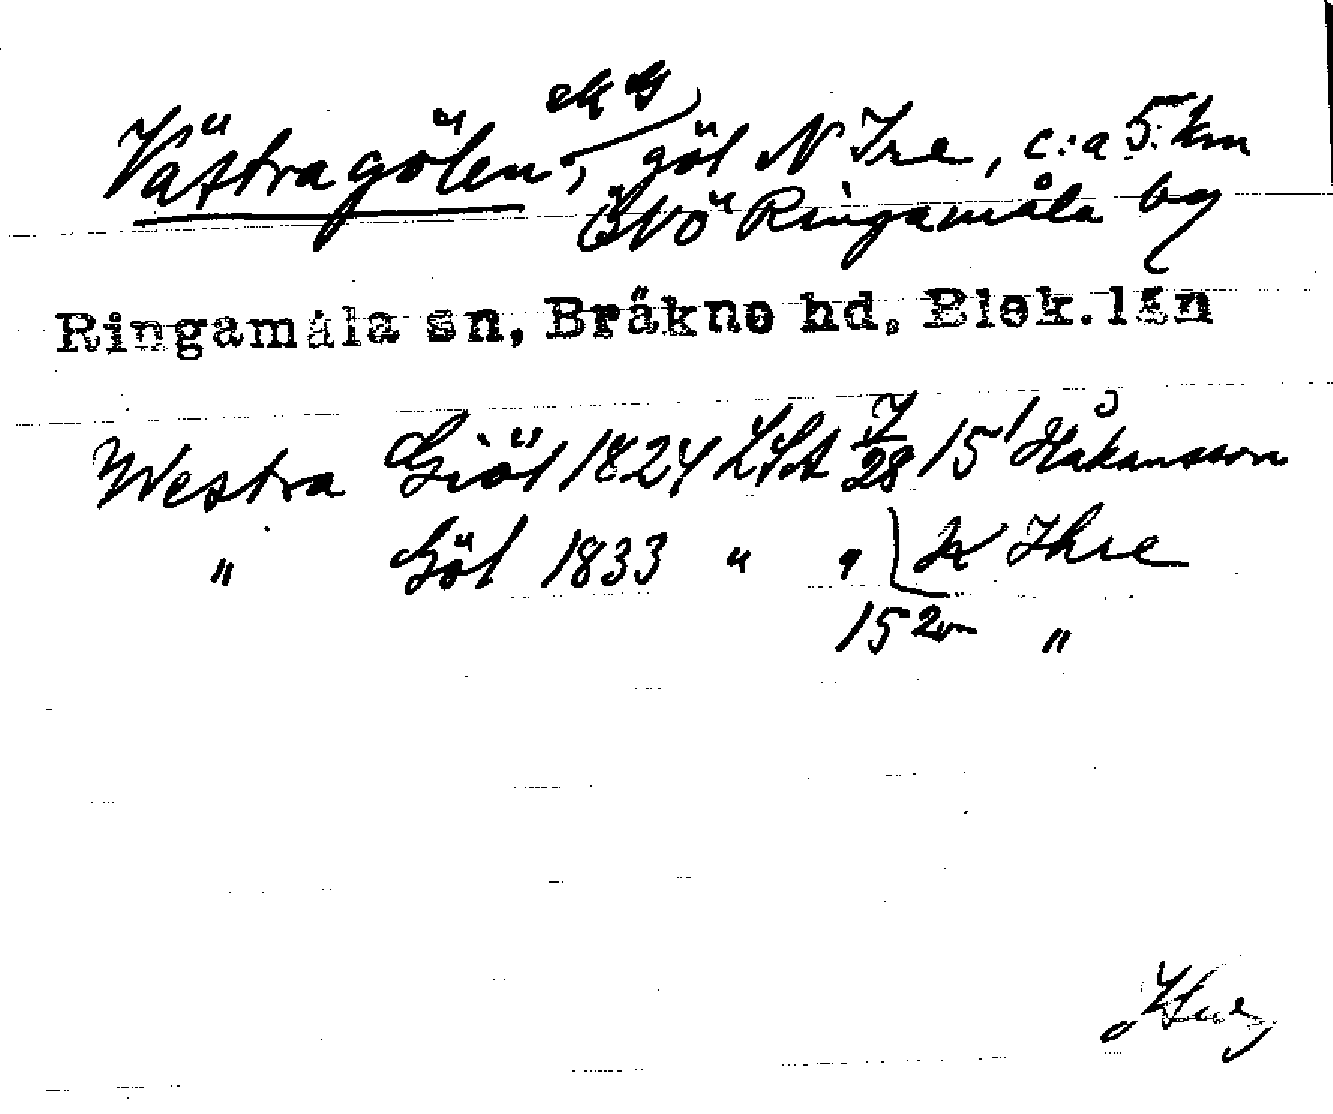 ek G
Västragölen, göl N Ire, c:a 5 km
ÖNÖ Ringamåla by
Ringamåla sn, Bräkne hd, Blek. län
Westra Giöl 1824 LSA J/28 15¹ Håkansson
" Göl 1833 " " K Ihre
15 2 "